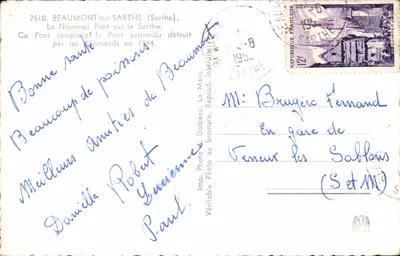 7610. BEAUMONT-sur-SARTHE (Sarthe).
Le Nouveau Pont sur la Sarthe.
Ce Pont remplace le Pont suspendu détruit
par les Allemands en 1944.
Bonne santé
Beaucoup de poissons
Meilleurs amitiés de Beaumont
Danielle Robert
Lucienne
Paul.
Imp. Photo
Dolbeau, Le Mans
Véritable Photo au bromure, Reprod.
REPUBLIQUE FRANÇAISE
12F
8
195
SARTHE
Mr Brugère Fernand
En gare de
Veneux les Sablons
(S et M)